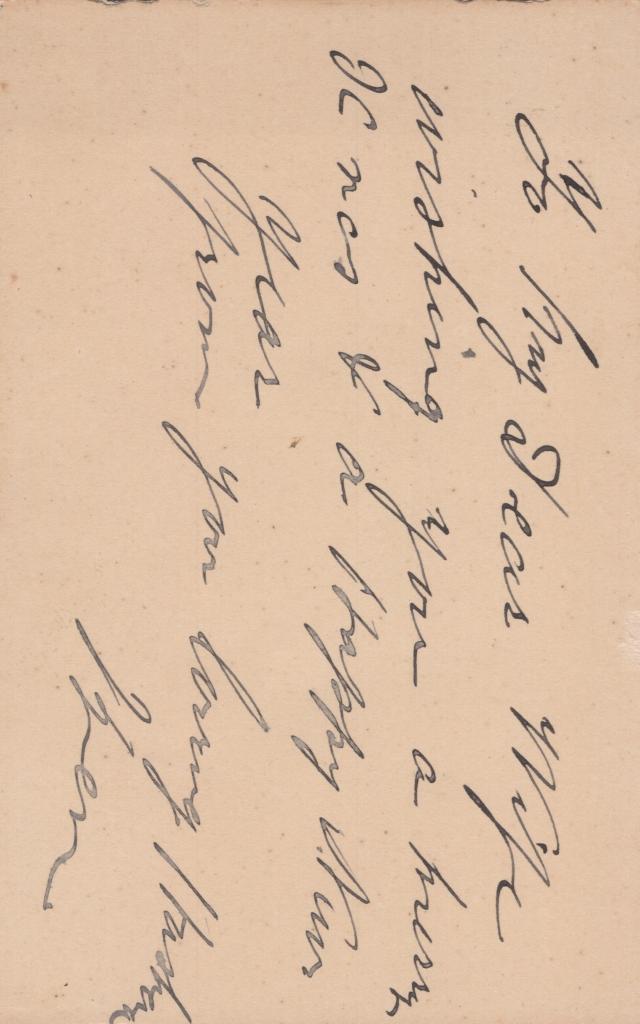 To my Dear Wife
wishing you a mery
Xmas & a happy New
Year
from your loving Husby
Ken